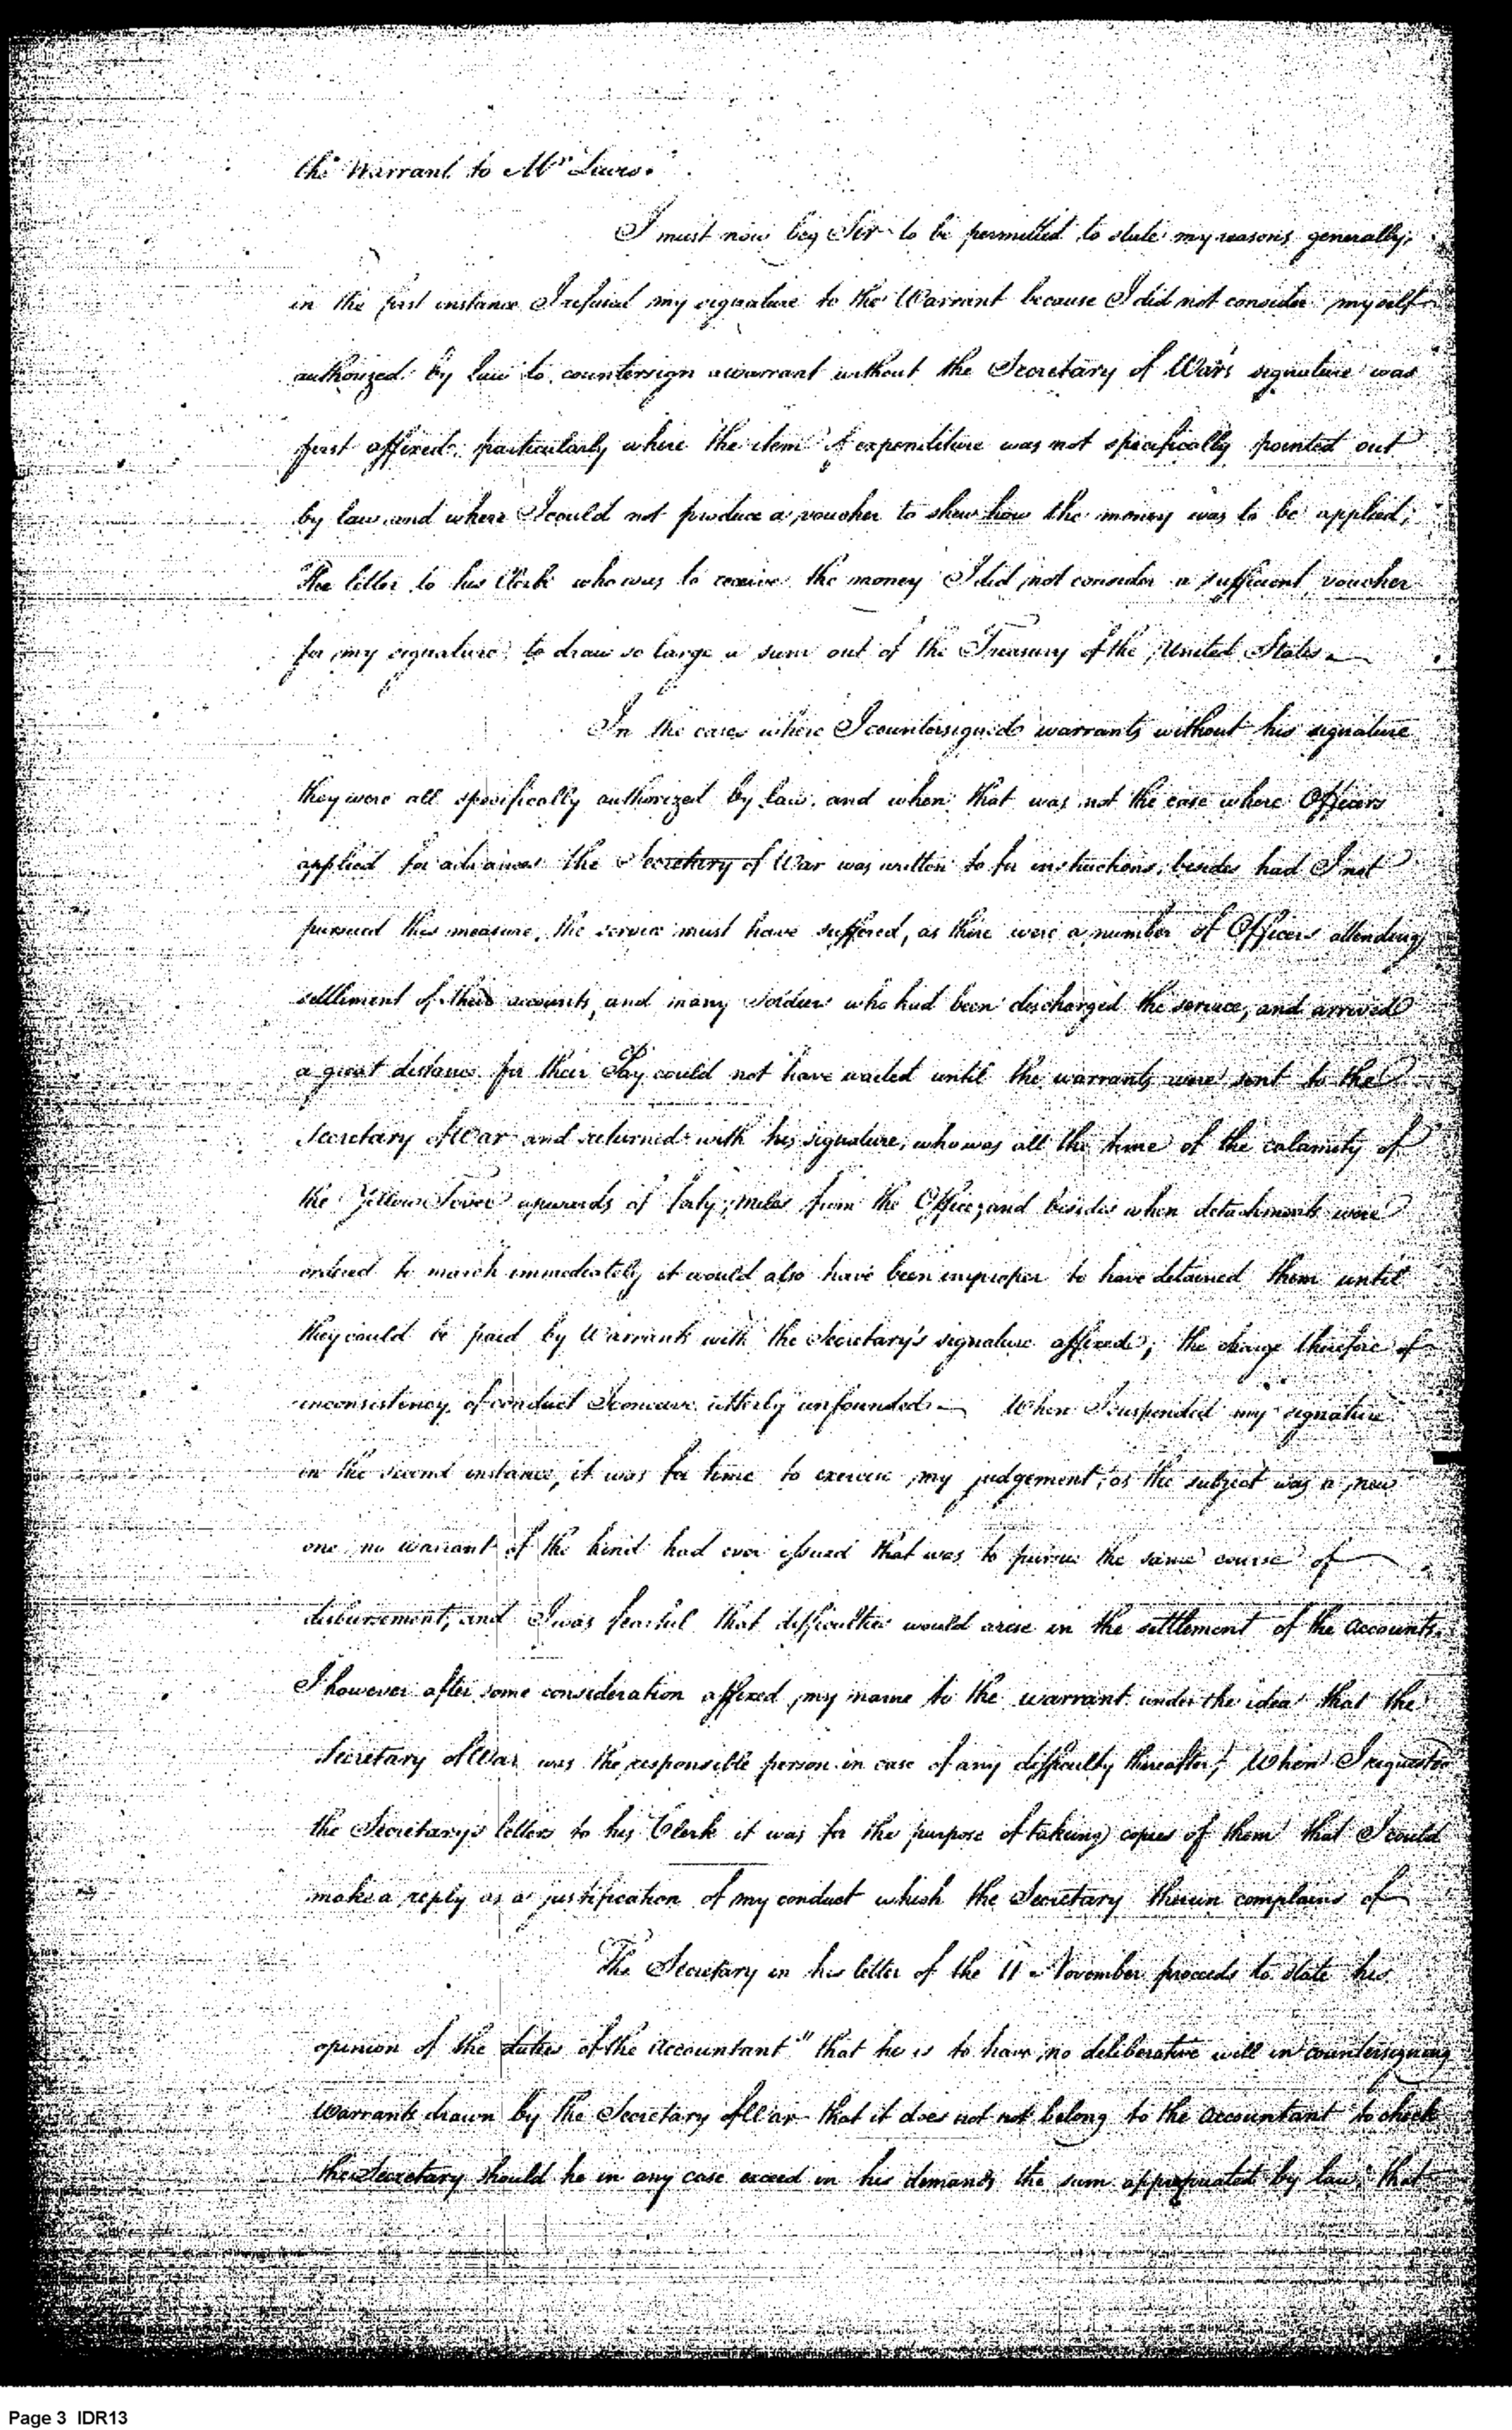 the Warrant to Mr Lewis.
I must now beg Sir to be permitted to state my reasons generally,
in the first instance I refused my signature to the Warrant because I did not consider myself
authorized by law to countersign a warrant without the Secretary of War's signature was
first affixed, particularly where the item of expenditure was not specifically pointed out
by law, and where I could not produce a voucher to shew how the money was to be applied;
The letter to his Clerk who was to receive the money I did not consider a sufficient voucher
for my signature, to draw so large a sum out of the Treasury of the United States.
In the cases where I countersigned warrants without his signature
they were all specifically authorized by law, and when that was not the case where Officers
applied for advances the Secretary of War was written to for instructions, besides had I not
pursued this measure, the service must have suffered, as there were a number of Officers attending
settlement of their accounts, and many soldiers who had been discharged the service, and arrived
a great distance for their Pay could not have waited until the warrants were sent to the
Secretary of War and returned with his signature, who was all the time of the calamity of
the Yellow Fever upwards of forty miles from the Office; and besides when detachments were
ordered to march immediately it would also have been improper to have detained them until
they could be paid by Warrants with the Secretary's signature affixed; the charge therefore of
inconsistency of conduct I conceive utterly unfounded. When I suspended my signature
in the second instance, it was for time to exercise my judgement, as the subject was a new
one, no warrant of the kind had ever issued that was to pursue the same course of
disbursement, and I was fearful that difficulties would arise in the settlement of the accounts.
I however after some consideration affixed my name to the warrant under the idea that the
Secretary of War was the responsible person in case of any difficulty thereafter; When I requested
the Secretary's letters to his Clerk it was for the purpose of taking copies of them that I could
make a reply as a justification of my conduct which the Secretary therein complains of
The Secretary in his letter of the 11 November proceeds to state his
opinion of the duties of the Accountant "that he is to have no deliberative will in countersigning
Warrants drawn by the Secretary of War that it does not not belong to the accountant to check
the Secretary should he in any case exceed in his demands the sum appropriated by law; that
Page 3 IDR13